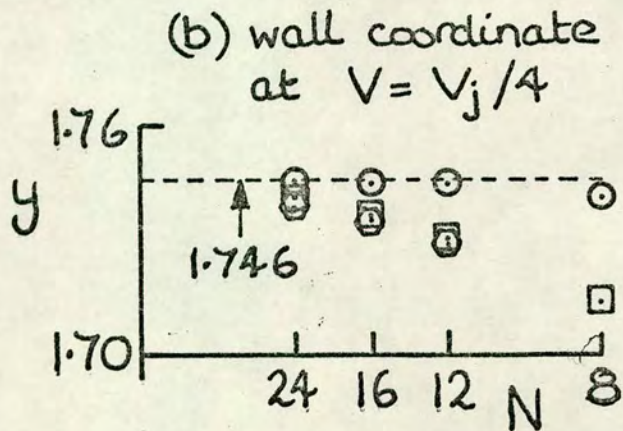 (b) wall coordinate
at V = Vj/4
1.76
y
1.746
1.70
24 16 12 N 8